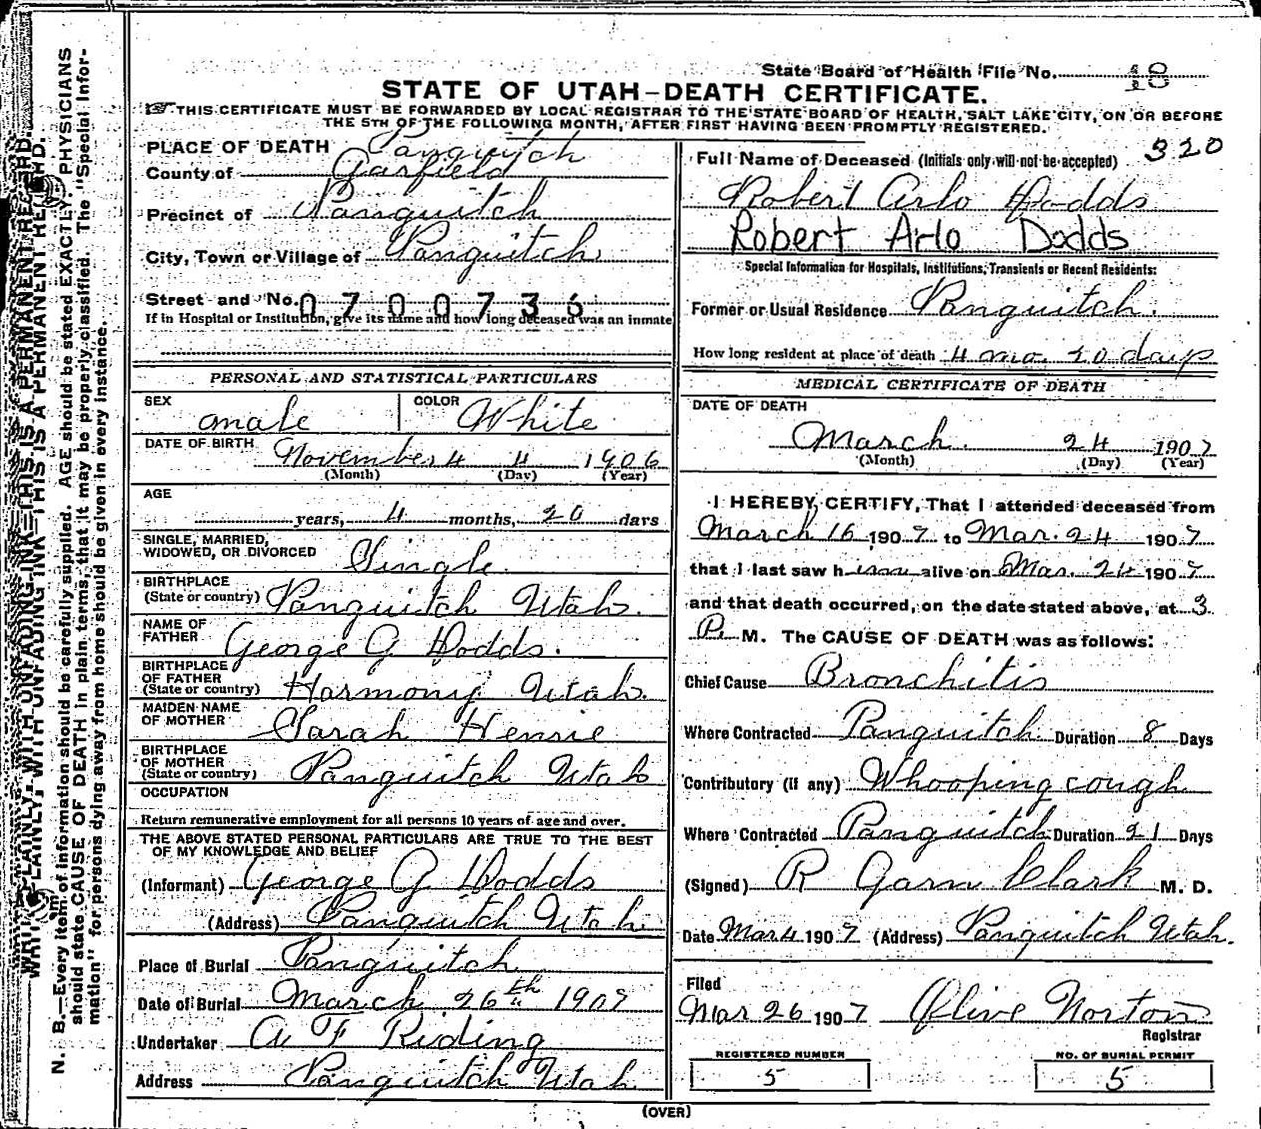 State Board of Health File No. 18
STATE OF UTAH—DEATH CERTIFICATE.
THIS CERTIFICATE MUST BE FORWARDED BY LOCAL REGISTRAR TO THE STATE BOARD OF HEALTH, SALT LAKE CITY, ON OR BEFORE
THE 5TH OF THE FOLLOWING MONTH, AFTER FIRST HAVING BEEN PROMPTLY REGISTERED.
PLACE OF DEATH Panguitch
County of Garfield
Precinct of Panguitch
City, Town or Village of Panguitch
Street and No. 0700736
If in Hospital or Institution, give its name and how long deceased was an inmate
320
Full Name of Deceased (Initials only will not be accepted)
Robert Arlo Dodds
Robert Arlo Dodds
Special Information for Hospitals, Institutions, Transients or Recent Residents:
Former or Usual Residence Panguitch.
How long resident at place of death 4 mo. 20 days
PERSONAL AND STATISTICAL PARTICULARS
SEX male COLOR White
DATE OF BIRTH November 4 4 1906
(Month) (Day) (Year)
AGE
years, 4 months, 20 days
SINGLE, MARRIED,
WIDOWED, OR DIVORCED Single.
BIRTHPLACE
(State or country) Panguitch Utah.
NAME OF
FATHER George G Dodds.
BIRTHPLACE
OF FATHER
(State or country) Harmony Utah.
MAIDEN NAME
OF MOTHER Sarah Henrie
BIRTHPLACE
OF MOTHER
(State or country) Panguitch Utah
OCCUPATION
Return remunerative employment for all persons 10 years of age and over.
THE ABOVE STATED PERSONAL PARTICULARS ARE TRUE TO THE BEST
OF MY KNOWLEDGE AND BELIEF
(Informant) George G Dodds
(Address) Panguitch Utah.
Place of Burial Panguitch
Date of Burial March 26th 1907
Undertaker A F Riding
Address Panguitch Utah
MEDICAL CERTIFICATE OF DEATH
DATE OF DEATH
March 24 1907
(Month) (Day) (Year)
I HEREBY CERTIFY, That I attended deceased from
March 16 1907 to Mar. 24 1907
that I last saw him alive on Mar. 24 1907
and that death occurred, on the date stated above, at 3
P. M. The CAUSE OF DEATH was as follows:
Chief Cause Bronchitis
Where Contracted Panguitch Duration 8 Days
Contributory (if any) Whooping cough
Where Contracted Panguitch Duration 21 Days
(Signed) R Garn Clark M. D.
Date Mar 4 1907 (Address) Panguitch Utah.
Filed
Mar 26 1907 Olive Norton
Registrar
REGISTERED NUMBER
5
NO. OF BURIAL PERMIT
5
(OVER)
WRITE PLAINLY WITH UNFADING INK—THIS IS A PERMANENT RECORD.
N. B.—Every item of information should be carefully supplied. AGE should be stated EXACTLY. PHYSICIANS
should state CAUSE OF DEATH in plain terms, that it may be properly classified. The "Special Infor-
mation" for persons dying away from home should be given in every instance.